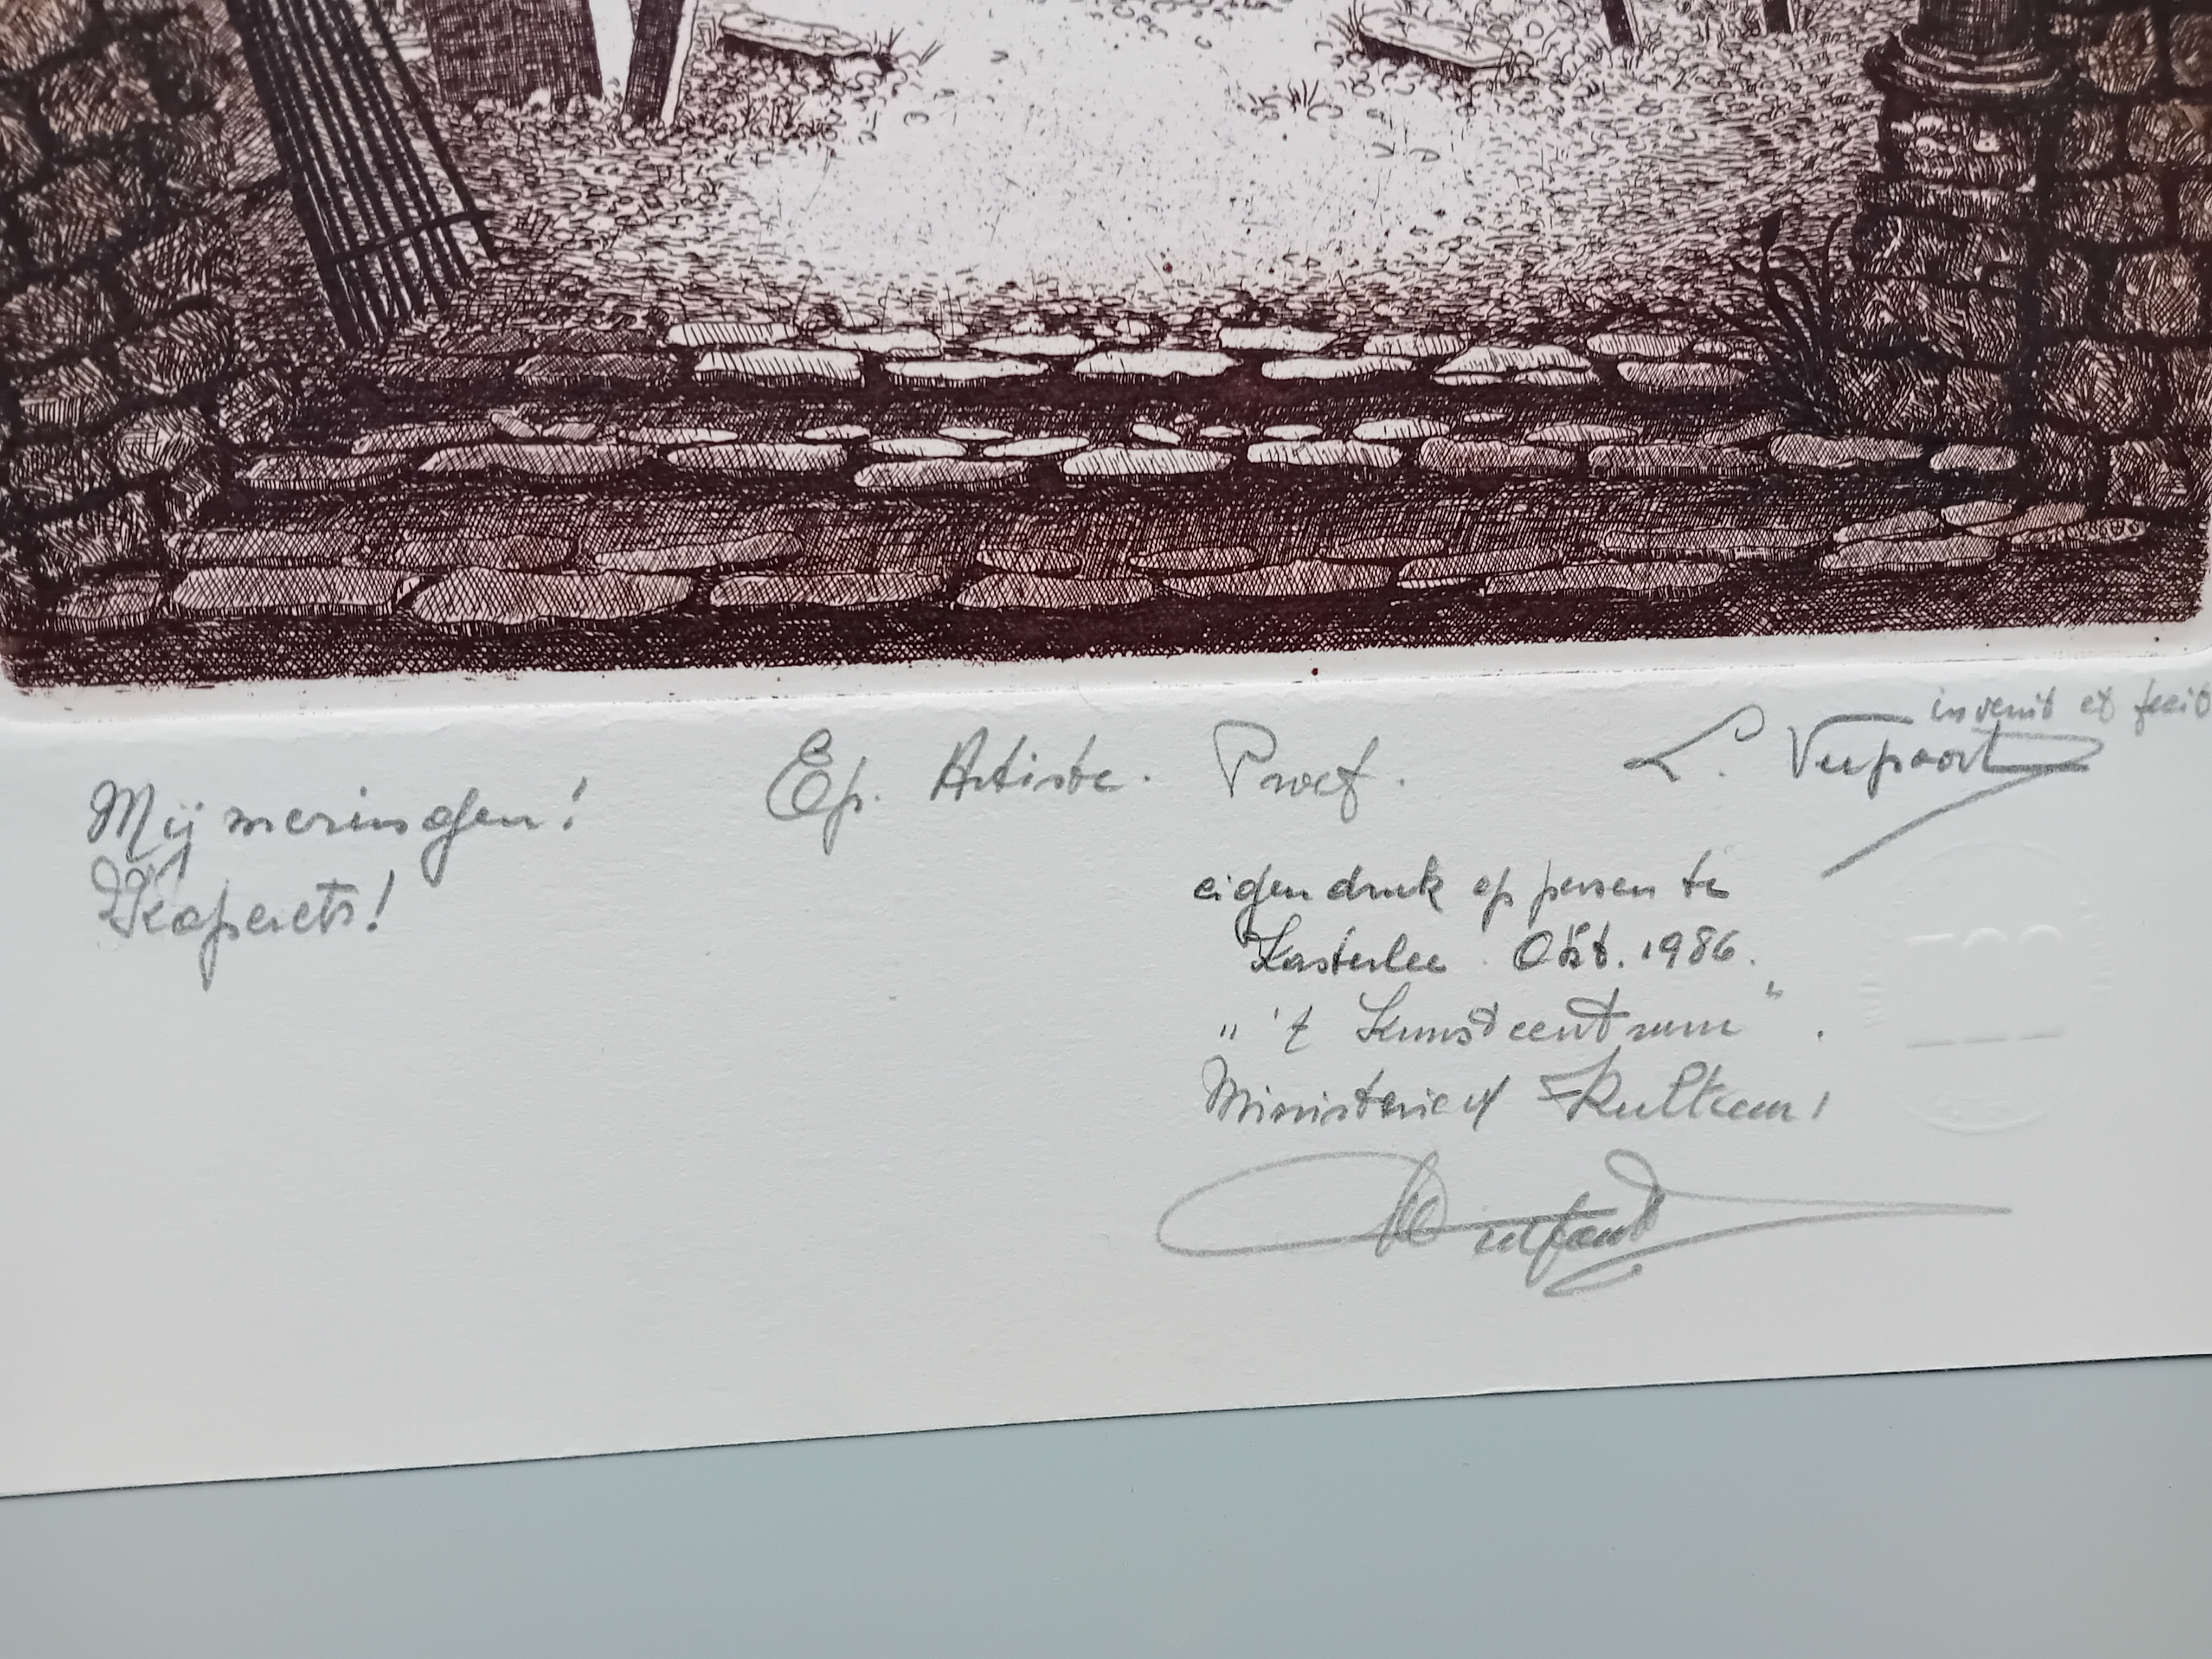 Mijmeringen!
Koperets!
Ep. Artiste. Proef.
L. Verpoort
invenit et fecit
eigen druk op persen te
Kasterlee Okt. 1986.
" 't Kunstcentrum ".
Ministerie